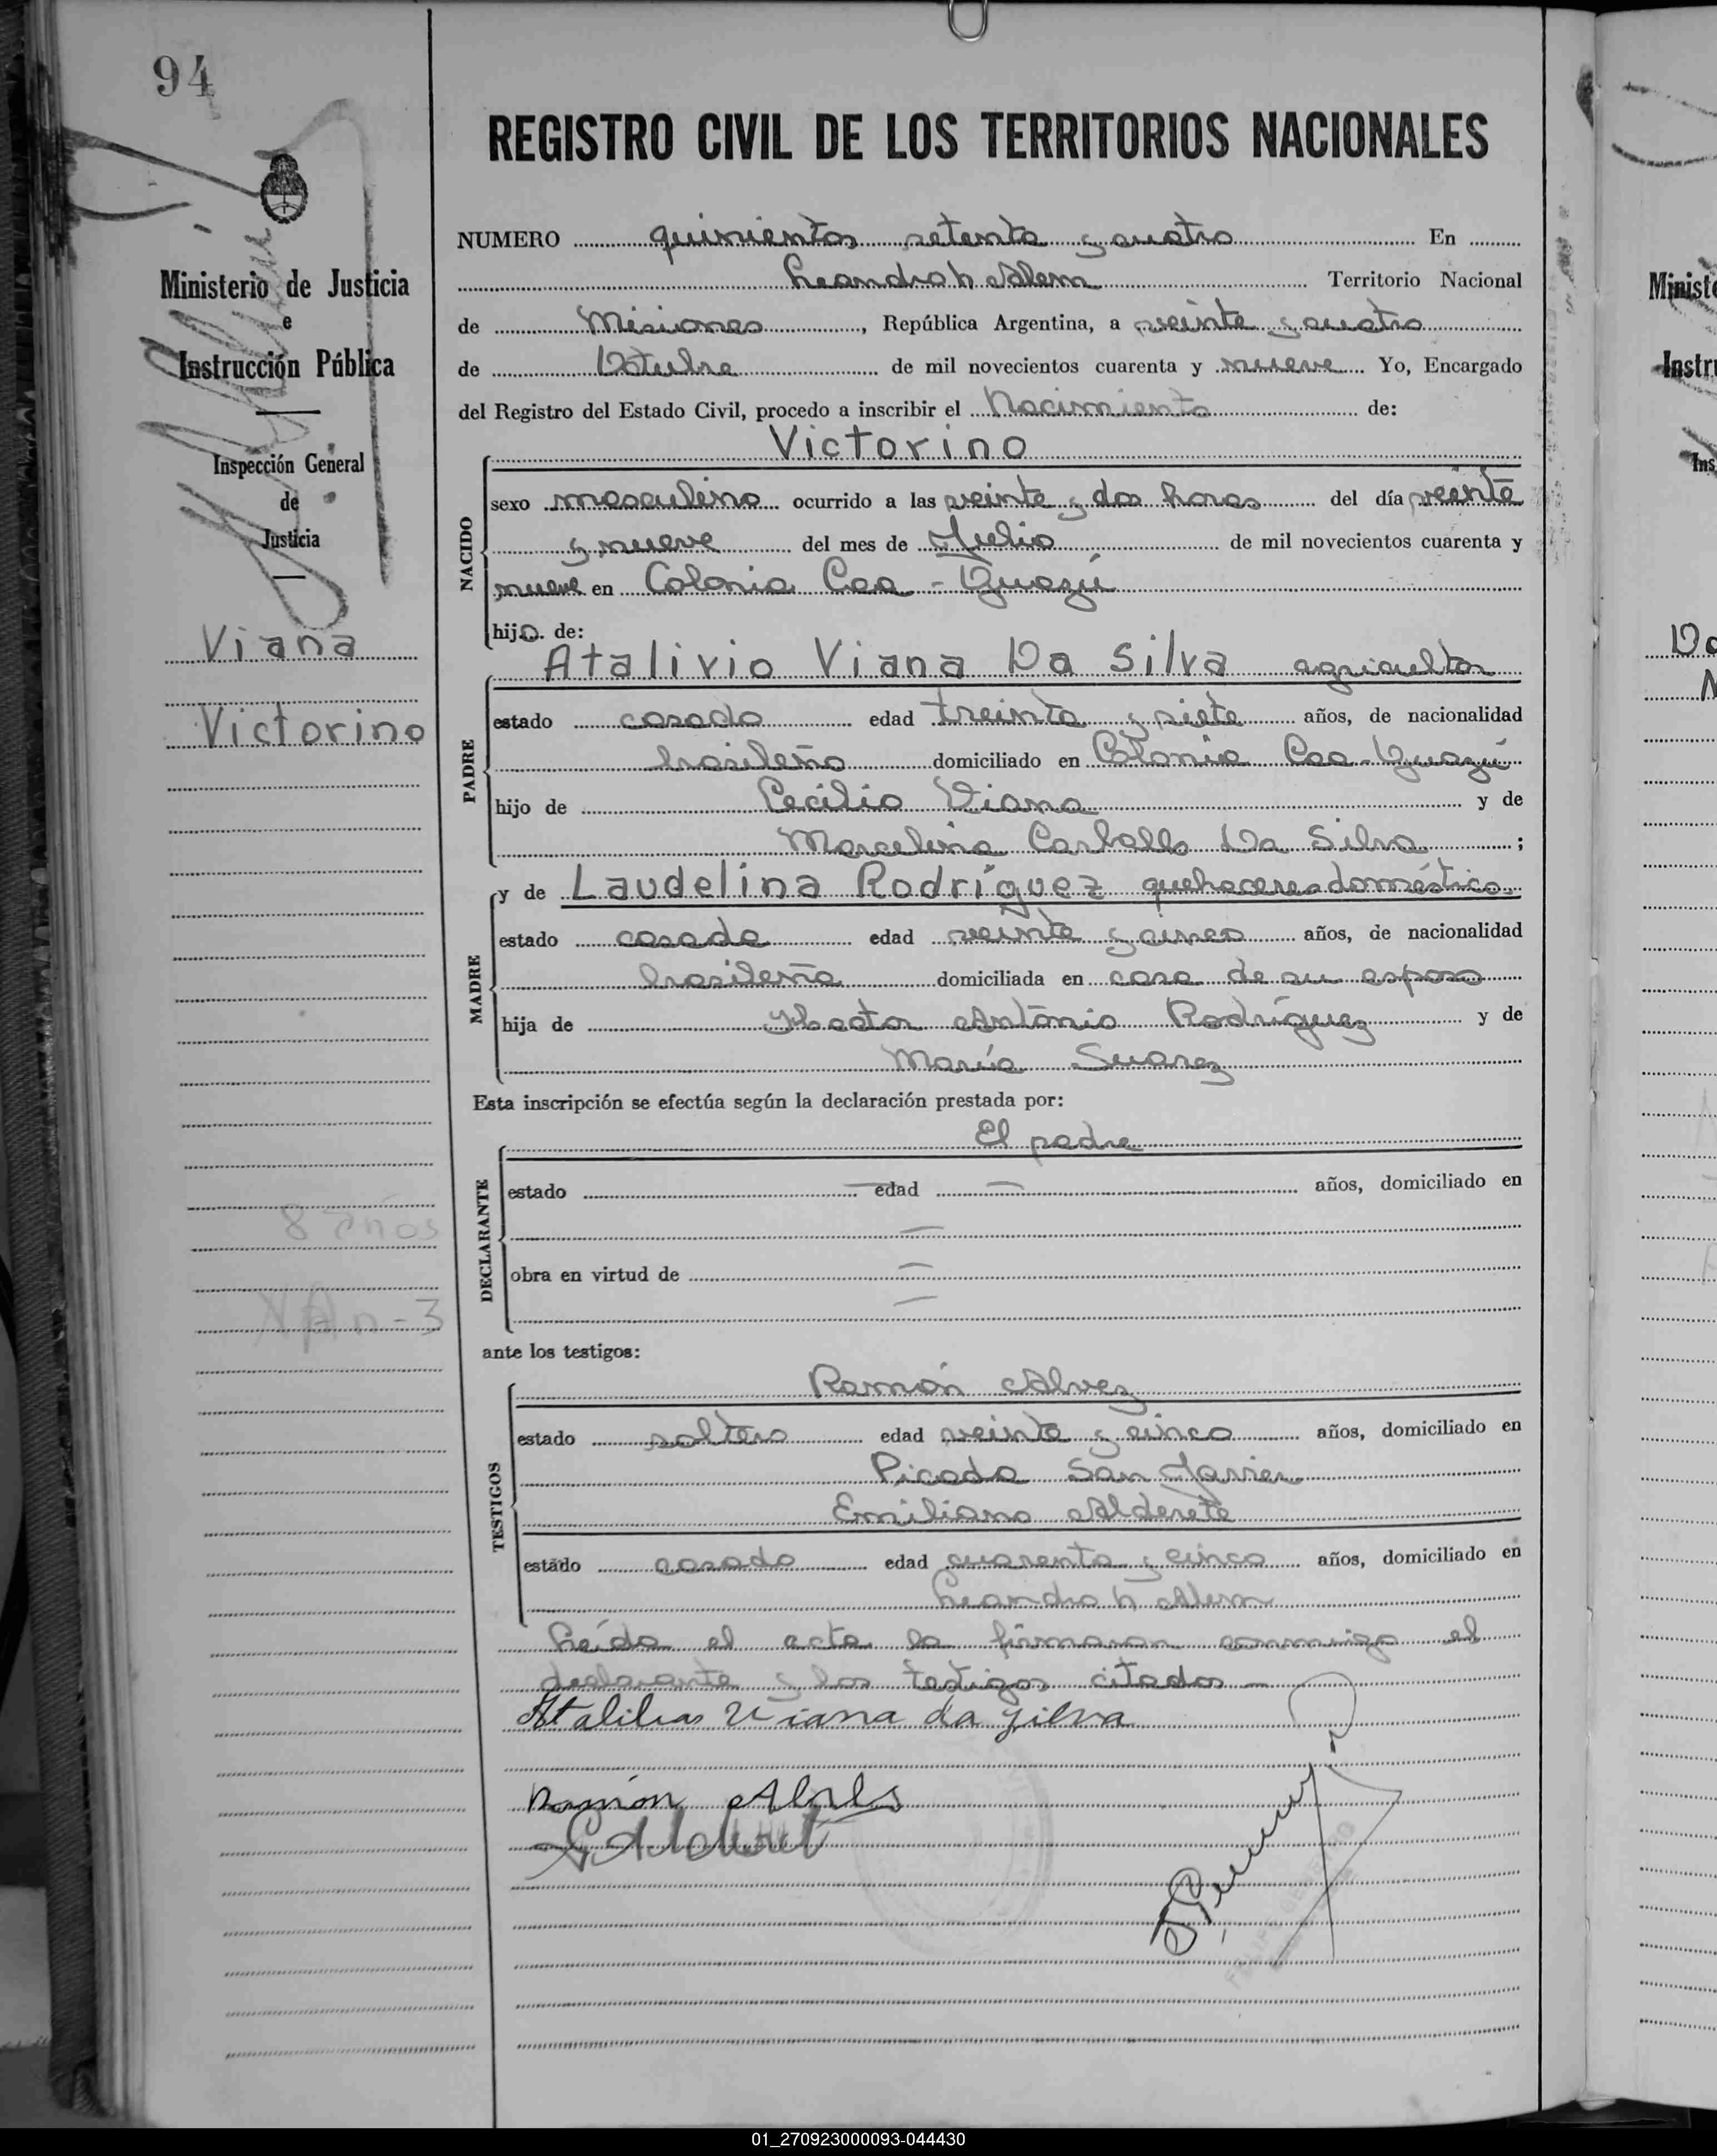 94
Ministerio de Justicia
e
Instrucción Pública
Inspección General
de
Justicia
Viana
Victorino
8 años
REGISTRO CIVIL DE LOS TERRITORIOS NACIONALES
NUMERO quinientos setenta y cuatro En
Leandro N Alem Territorio Nacional
de Misiones, República Argentina, a veinte y cuatro
de Octubre de mil novecientos cuarenta y nueve Yo, Encargado
del Registro del Estado Civil, procedo a inscribir el Nacimiento de:
Victorino
NACIDO
sexo masculino ocurrido a las veinte y dos horas del día veinte
y nueve del mes de Julio de mil novecientos cuarenta y
nueve en Colonia Caa-Guazú
hijo. de:
Atalivio Viana Da Silva agricultor
PADRE
estado casado edad treinta y siete años, de nacionalidad
brasileño domiciliado en Colonia Caa-Guazú
hijo de Cecilio Viana y de
Marcelina Carballo Da Silva ;
y de Laudelina Rodríguez quehaceres domésticos
MADRE
estado casada edad veinte y cinco años, de nacionalidad
brasileña domiciliada en casa de su esposo
hija de Hector Antonio Rodríguez y de
María Suarez
Esta inscripción se efectúa según la declaración prestada por:
El padre
DECLARANTE
estado — edad — años, domiciliado en
—
obra en virtud de —
—
ante los testigos:
Ramón Alvez
TESTIGOS
estado soltero edad veinte y cinco años, domiciliado en
Picada San Javier
Emiliano Alderete
estado casado edad cuarenta y cinco años, domiciliado en
Leandro N Alem
Leída el acta la firmaron conmigo el
declarante y los testigos citados —
Viana da Silva
Ramón
01_270923000093-044430